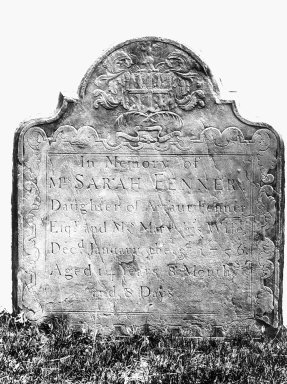 In Memory of
Mrs SARAH FENNER
Daughter of Arthur Fenner
Esqr and Mrs Mary his Wife
Decd January the
Aged Years 8 Months
and 8 Days